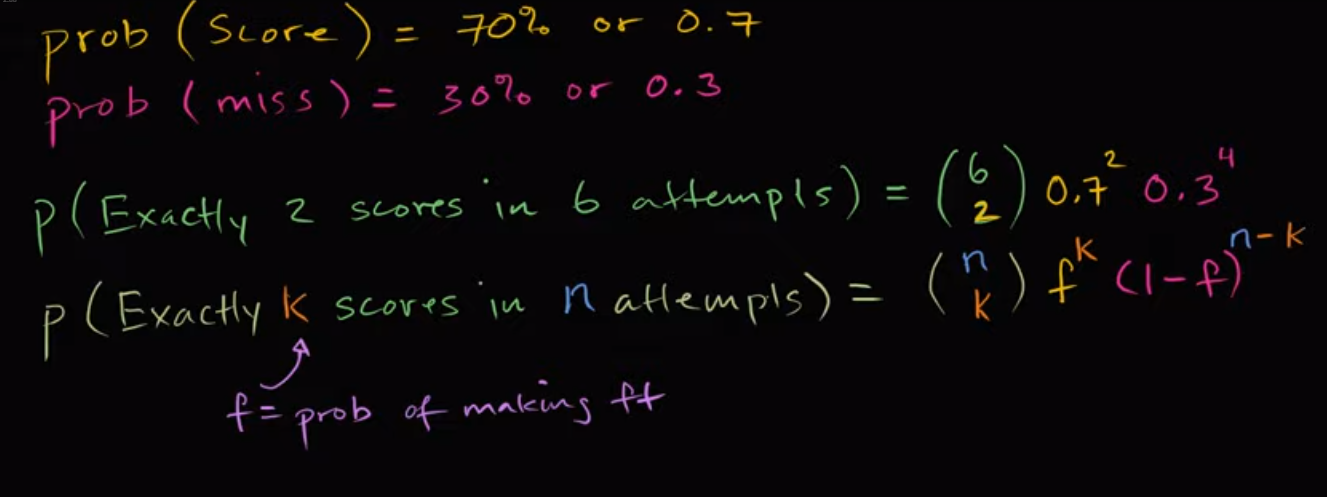 prob (Score) = 70% or 0.7
prob (miss) = 30% or 0.3
P(Exactly 2 scores in 6 attempts) = (6 2) 0.7^2 0.3^4
P(Exactly k scores in n attempts) = (n k) f^k (1-f)^n-k
f = prob of making ft